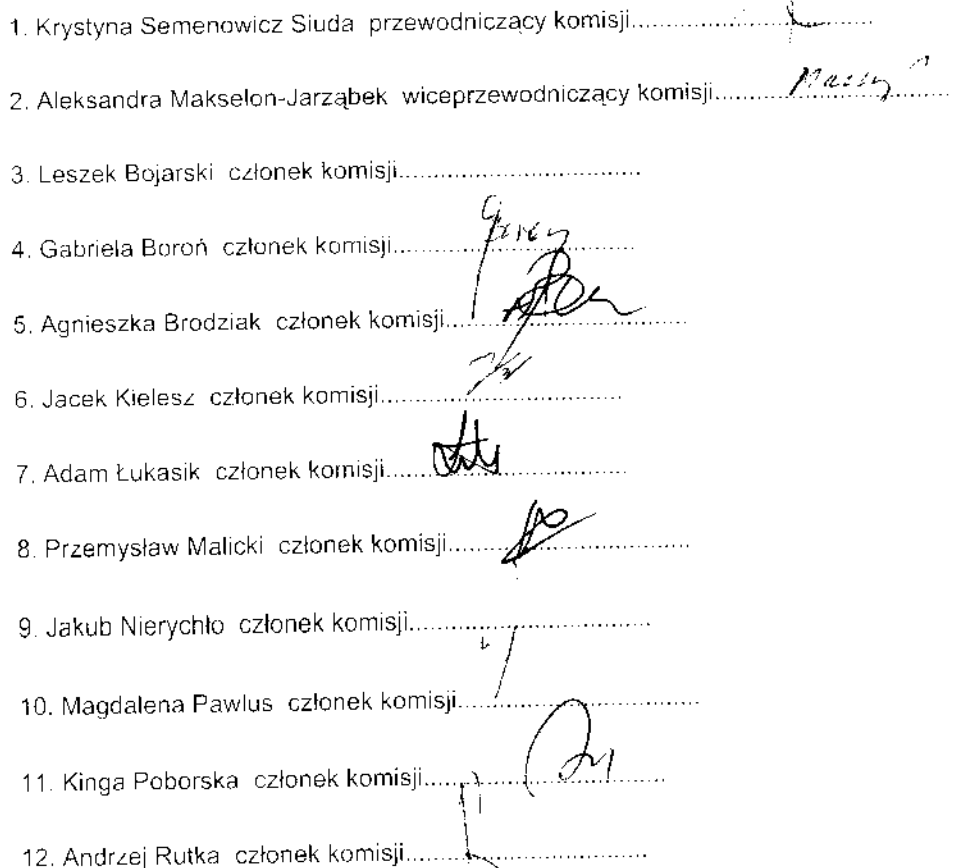 1. Krystyna Semenowicz Siuda przewodniczący komisji........................................
2. Aleksandra Makselon-Jarząbek wiceprzewodniczący komisji........................................
3. Leszek Bojarski członek komisji........................................
4. Gabriela Boroń członek komisji........................................
5. Agnieszka Brodziak członek komisji........................................
6. Jacek Kielesz członek komisji........................................
7. Adam Łukasik członek komisji........................................
8. Przemysław Malicki członek komisji........................................
9. Jakub Nierychło członek komisji........................................
10. Magdalena Pawlus członek komisji........................................
11. Kinga Poborska członek komisji........................................
12. Andrzej Rutka członek komisji........................................